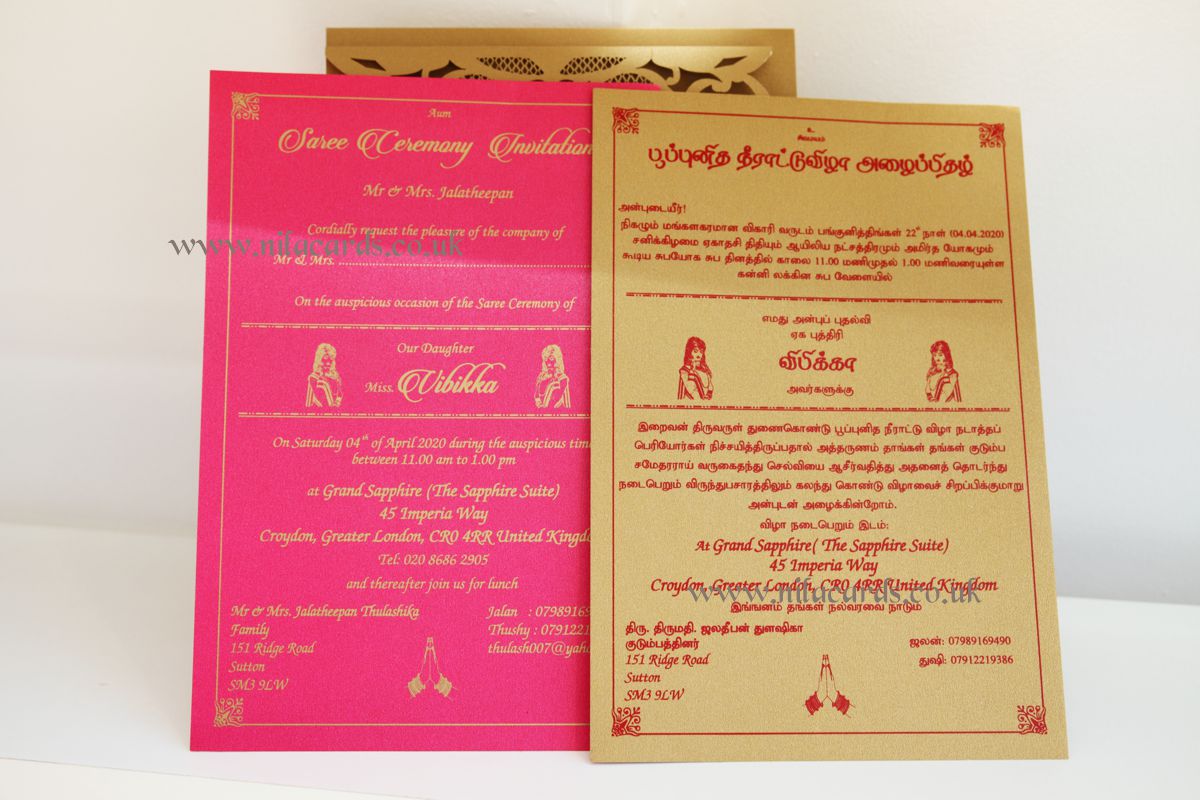 Aum
Saree Ceremony Invitation
Mr & Mrs. Jalatheepan
Cordially request the pleasure of the company of
www.nilacards.co.uk
Mr & Mrs. ............................................................
On the auspicious occasion of the Saree Ceremony of
Our Daughter
Miss. Vibikka
On Saturday 04th of April 2020 during the auspicious time
between 11.00 am to 1.00 pm
at Grand Sapphire (The Sapphire Suite)
45 Imperia Way
Croydon, Greater London, CR0 4RR United Kingdo
Tel: 020 8686 2905
and thereafter join us for lunch
Mr & Mrs. Jalatheepan Thulashika
Family
151 Ridge Road
Sutton
SM3 9LW
Jalan : 07989169
Thushy : 0791221
thulash007@yaho
உ
சிவமயம்
பூப்புனித நீராட்டுவிழா அழைப்பிதழ்
அன்புடையீர்!
நிகழும் மங்களகரமான விகாரி வருடம் பங்குனித்திங்கள் 22ம் நாள் (04.04.2020)
சனிக்கிழமை ஏகாதசி திதியும் ஆயிலிய நட்சத்திரமும் அமிர்த யோகமும்
கூடிய சுபயோக சுப தினத்தில் காலை 11.00 மணிமுதல் 1.00 மணிவரையுள்ள
கன்னி லக்கின சுப வேளையில்
எமது அன்புப் புதல்வி
ஏக புத்திரி
விபிக்கா
அவர்களுக்கு
இறைவன் திருவருள் துணைகொண்டு பூப்புனித நீராட்டு விழா நடாத்தப்
பெரியோர்கள் நிச்சயித்திருப்பதால் அத்தருணம் தாங்கள் தங்கள் குடும்ப
சமேதரராய் வருகைதந்து செல்வியை ஆசீர்வதித்து அதனைத் தொடர்ந்து
நடைபெறும் விருந்துபசாரத்திலும் கலந்து கொண்டு விழாவைச் சிறப்பிக்குமாறு
அன்புடன் அழைக்கின்றோம்.
விழா நடைபெறும் இடம்:
At Grand Sapphire( The Sapphire Suite)
45 Imperia Way
Croydon, Greater London, CR0 4RR United Kingdom
www.nilacards.co.uk
இங்ஙனம் தங்கள் நல்வரவை நாடும்
திரு. திருமதி. ஜலதீபன் துளஷிகா
குடும்பத்தினர்
151 Ridge Road
Sutton
SM3 9LW
ஜலன்: 07989169490
துஷி: 07912219386